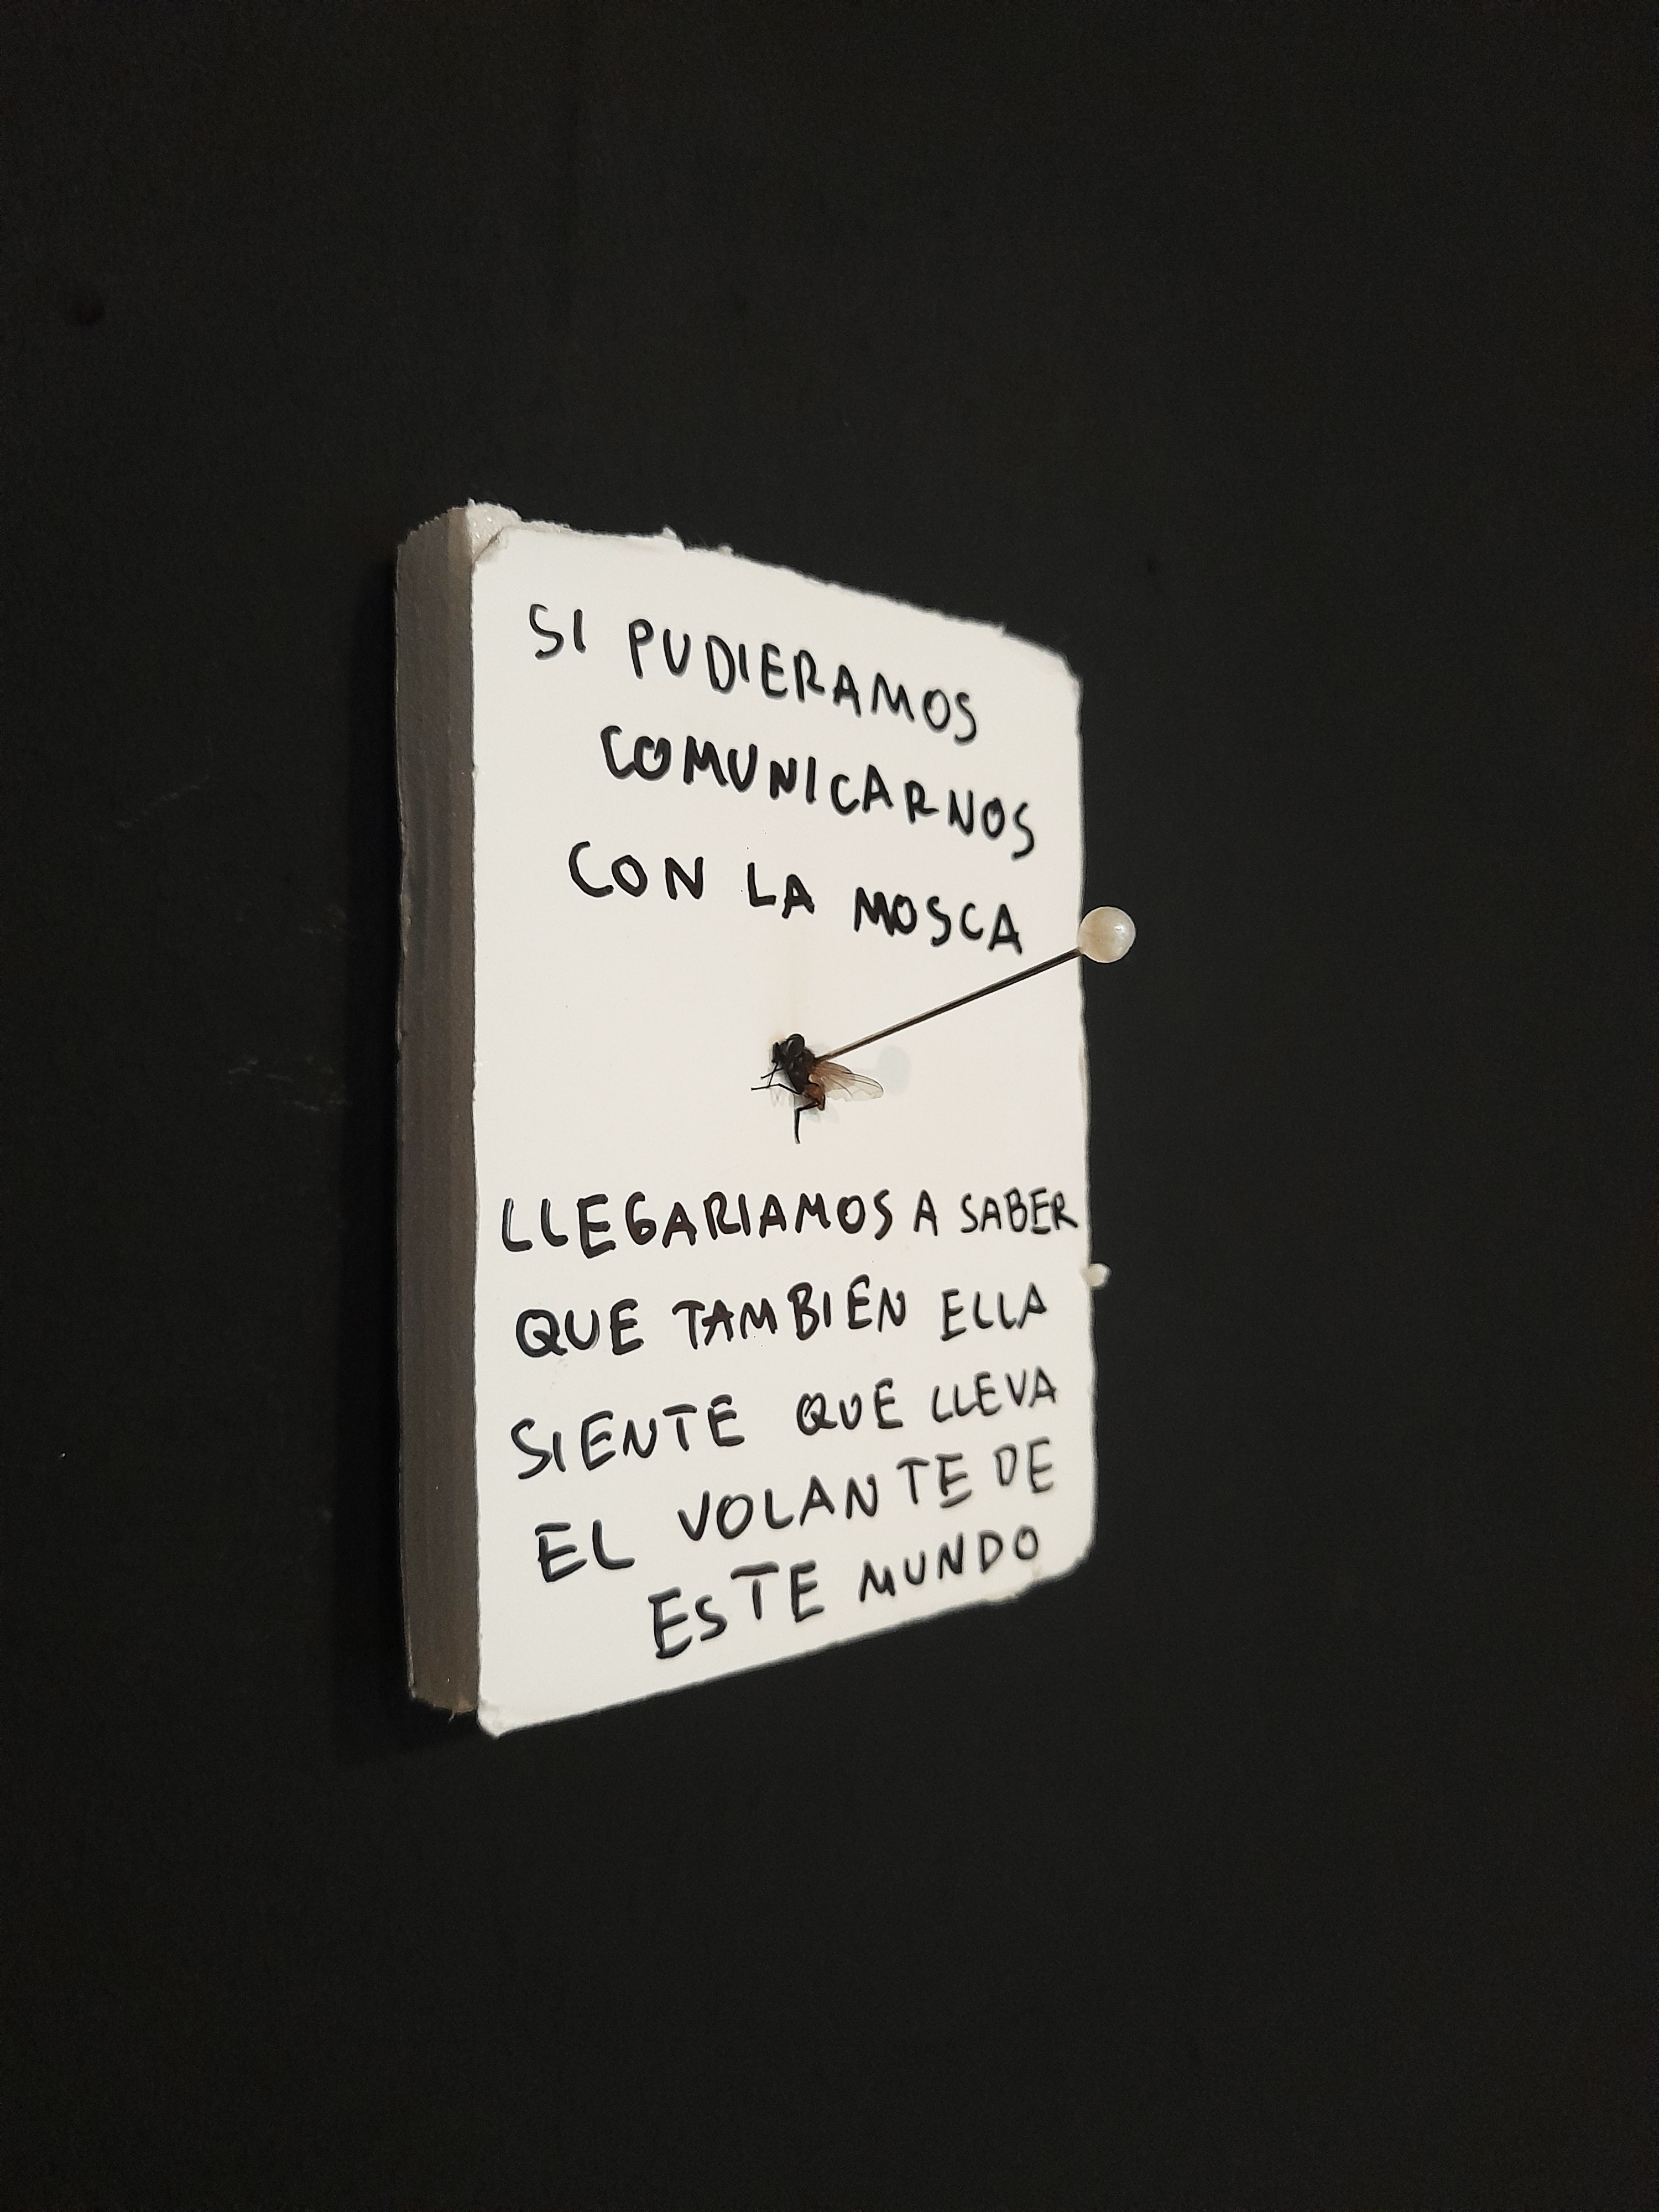 SI PUDIERAMOS
COMUNICARNOS
CON LA MOSCA
LLEGARIAMOS A SABER
QUE TAMBIEN ELLA
SIENTE QUE LLEVA
EL VOLANTE DE
ESTE MUNDO